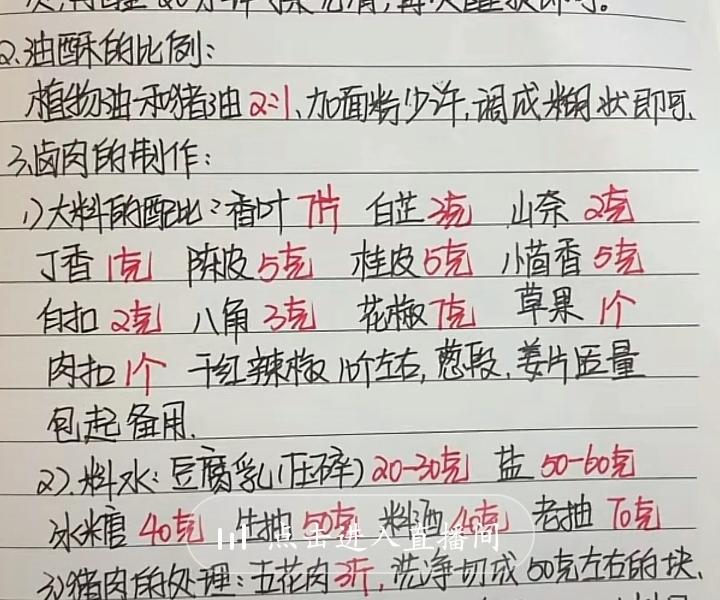 2.油酥的比例:
植物油和猪油2:1、加面粉少许,调成糊状即可.
3.卤肉的制作:
1)大料的配比:香叶7片 白芷3克 山奈2克
丁香1克 陈皮5克 桂皮5克 小茴香5克
白扣2克 八角3克 花椒7克 草果1个
肉扣1个 干红辣椒 左右,葱段、姜片适量
包起备用.
2).料水:豆腐乳(压碎)20-30克 盐50-60克
冰糖40克 生抽50克 料酒40克 老抽70克
点击进入直播间
3)猪肉的处理:五花肉3斤,洗净切成50克左右的块.